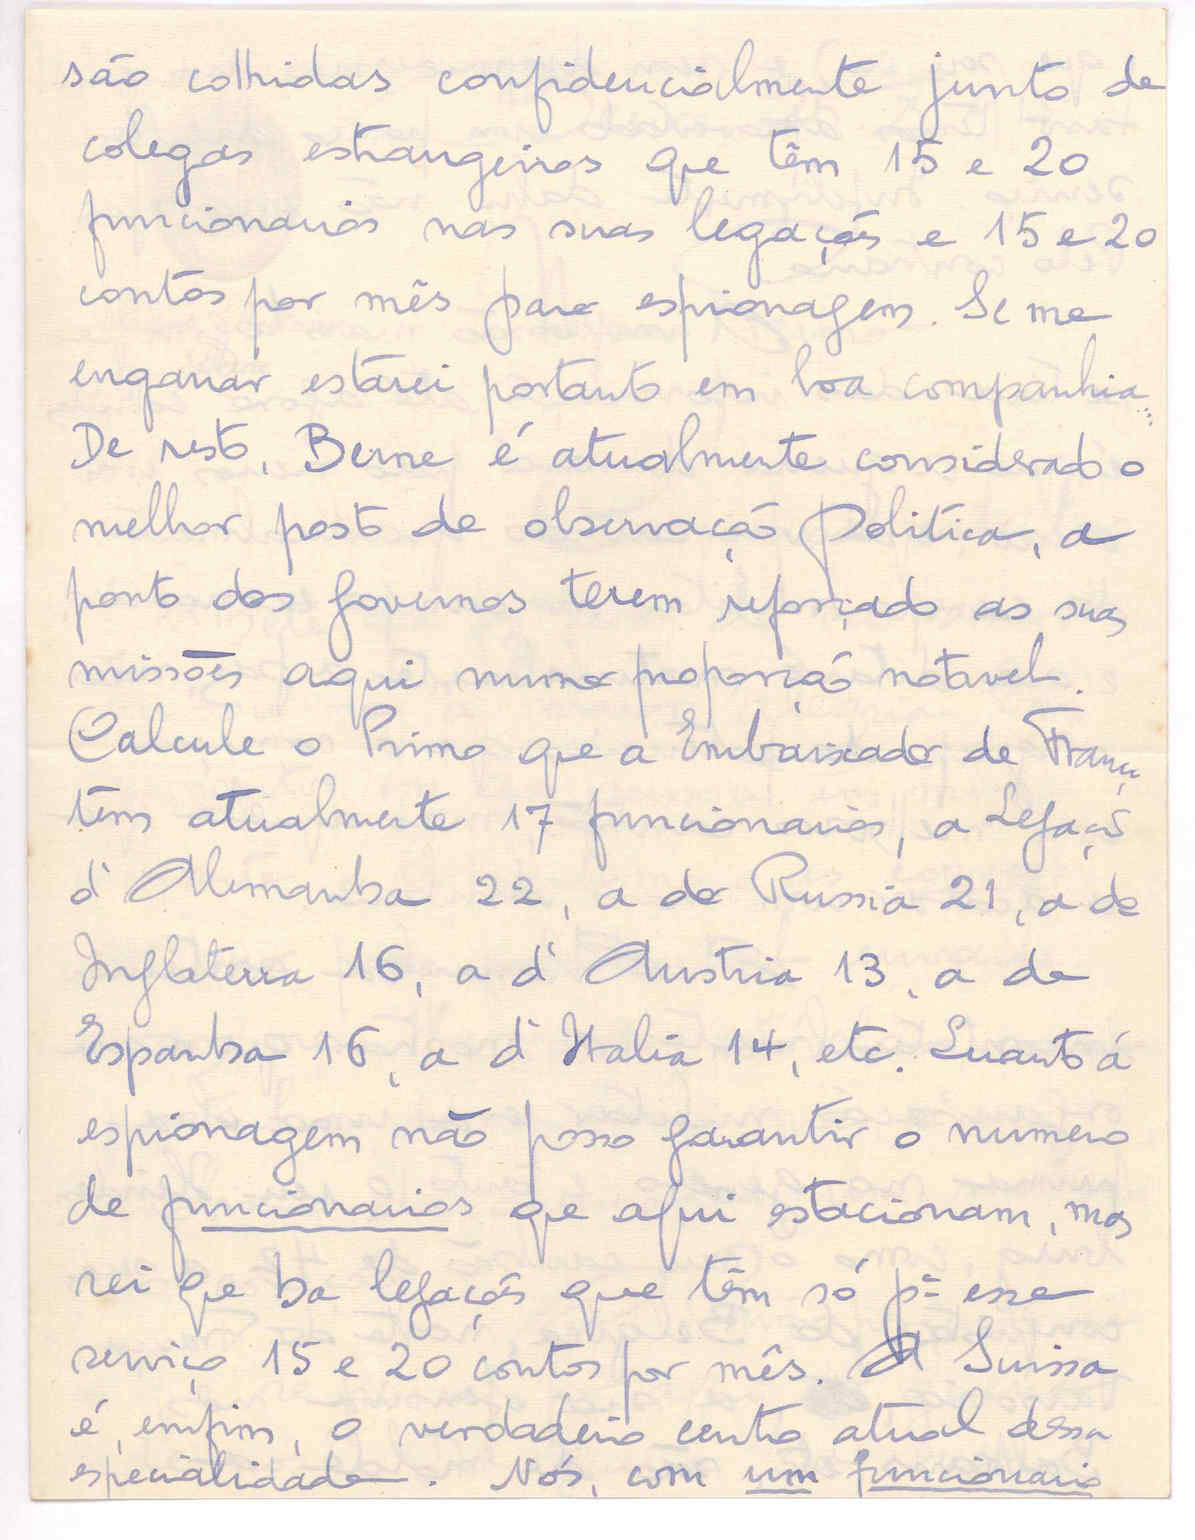 são colhidas confidencialmente junto de
colegas estrangeiros que têm 15 e 20
funcionarios nas suas legações e 15 e 20
contos por mês para espionagem. Se me
enganar estarei portanto em boa companhia...
De resto, Berne é atualmente considerado o
melhor posto de observação politica, a
ponto dos governos terem reforçado as suas
missões aqui numa proporção notavel.
Calcule o Primo que a Embaixador de França
têm atualmente 17 funcionarios, a Legação
d'Alemanha 22, a da Russia 21, a de
Inglaterra 16, a d'Austria 13, a de
Espanha 16, a d'Italia 14, etc. Quanto á
espionagem não posso garantir o numero
de funcionarios que aqui estacionam, mas
sei que ha legações que têm só pª esse
serviço 15 e 20 contos por mês. A Suissa
é, emfim, o verdadeiro centro atual dessa
especialidade. Nós, com um funcionario